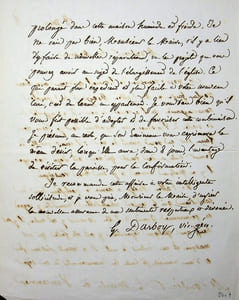 prolongé dans cette maison humide et froide. Je
ne sais pas bien, Monsieur le Maire, s'il y a lieu
d'y faire de nouvelles réparations, ou le projet que vous
pouvez avoir au sujet de l'élargissement de l'église. Ce
qui paraît plus expédient et plus facile à votre
c'est de louer un appartement. Je voudrais bien qu'il
vous fût possible d'adopter et de favoriser cette combinaison.
Je présume, au reste, que son Éminence vous exprimera le
même désir, lorsqu'elle aura, dans peu, l'avantage
de visiter la paroisse, pour la Confirmation.
Je recommande cette affaire à votre intelligente
sollicitude, et je vous prie, Monsieur le Maire, d'agréer
la nouvelle assurance de mes sentiments respectueux et dévoués.
G. Darboy, vic. gén.